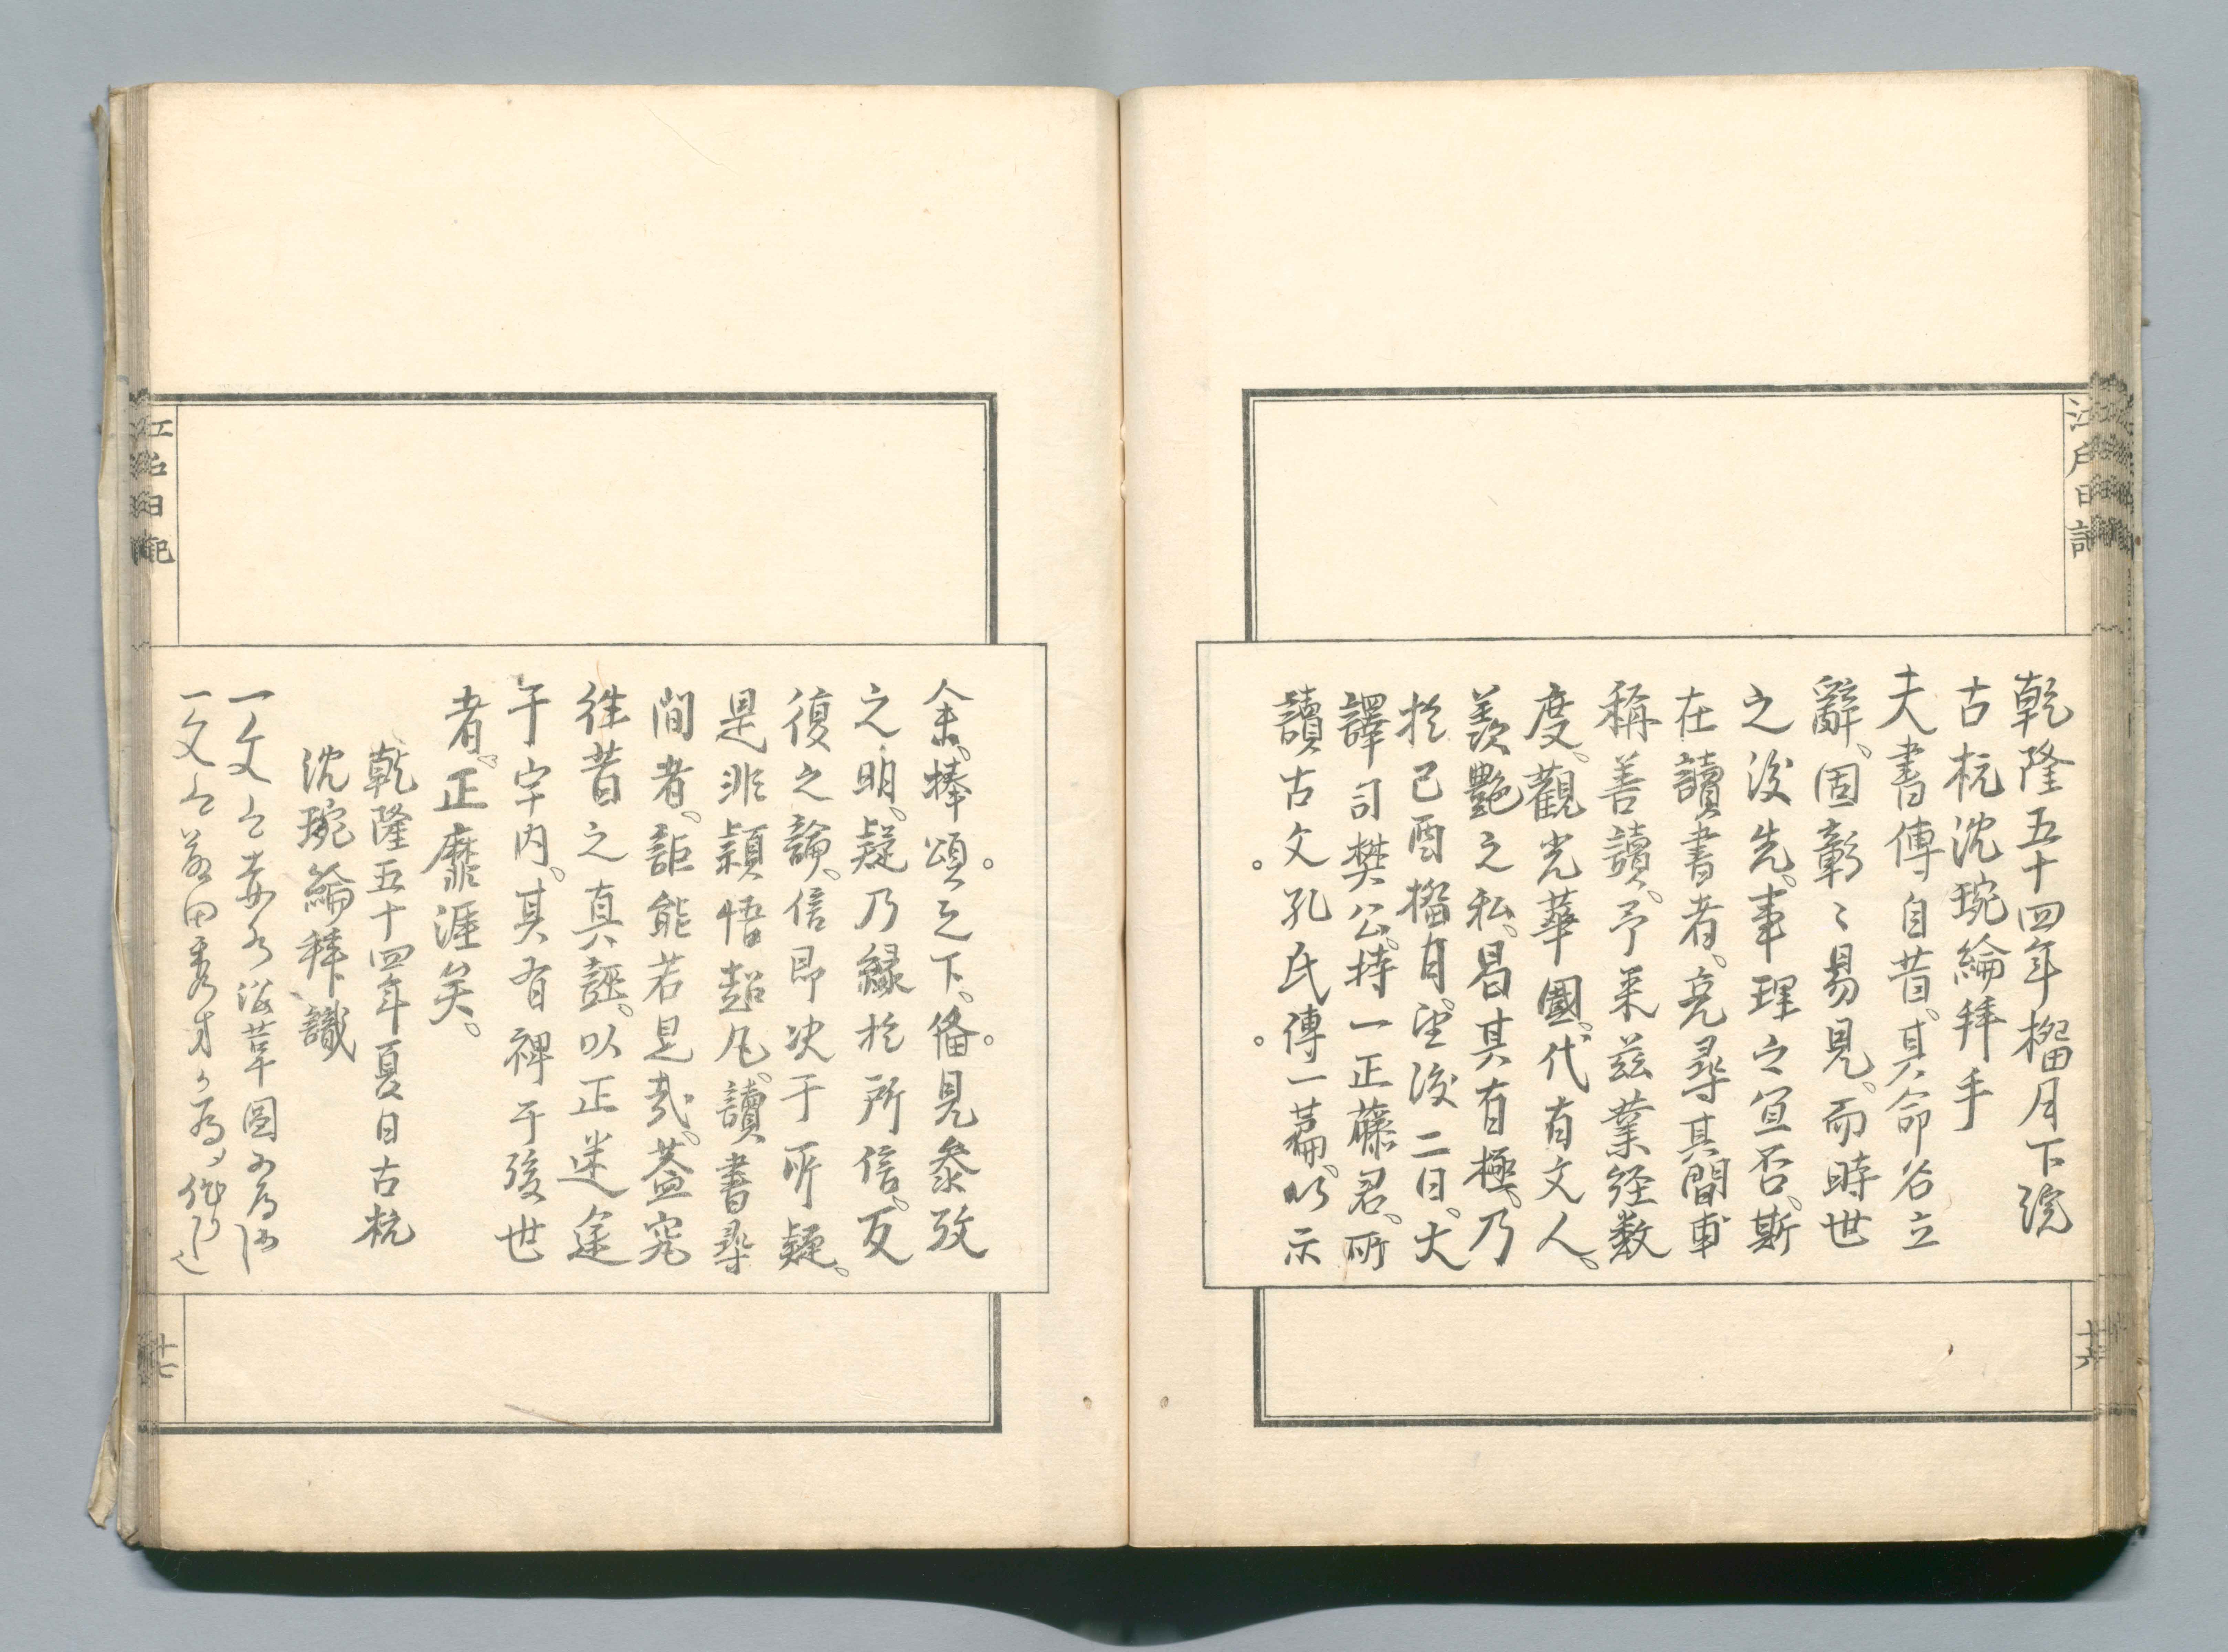 江戸日記
乾隆五十四年榴月下浣
古杭沈琬綸拜手
夫書傳自昔、其命名立
辭、固彰〻易見、而時世
之後先、事理之宜否、斯
在讀書者、亮尋其間耳
稱善讀、予業茲業経数
度、觀光華國、代有文人、
羨艷之私、曷其有極、乃
於己酉榴月望後二日、大
譯司樊公持一正藤君、所
讀古文孔氏傳一篇、以示
十六
余、捧頌之下、備見叅攷
之明、疑乃緣於所信、反
復之論、信即决于所疑、
是非頴悟超凡、讀書尋
間者、詎能若是哉、葢究
往昔之真誣、以正迷途
于宇内、其有裨于後世
者、正靡涯矣、
乾隆五十四年夏日古杭
沈琬綸拜識
江戸日記
十七